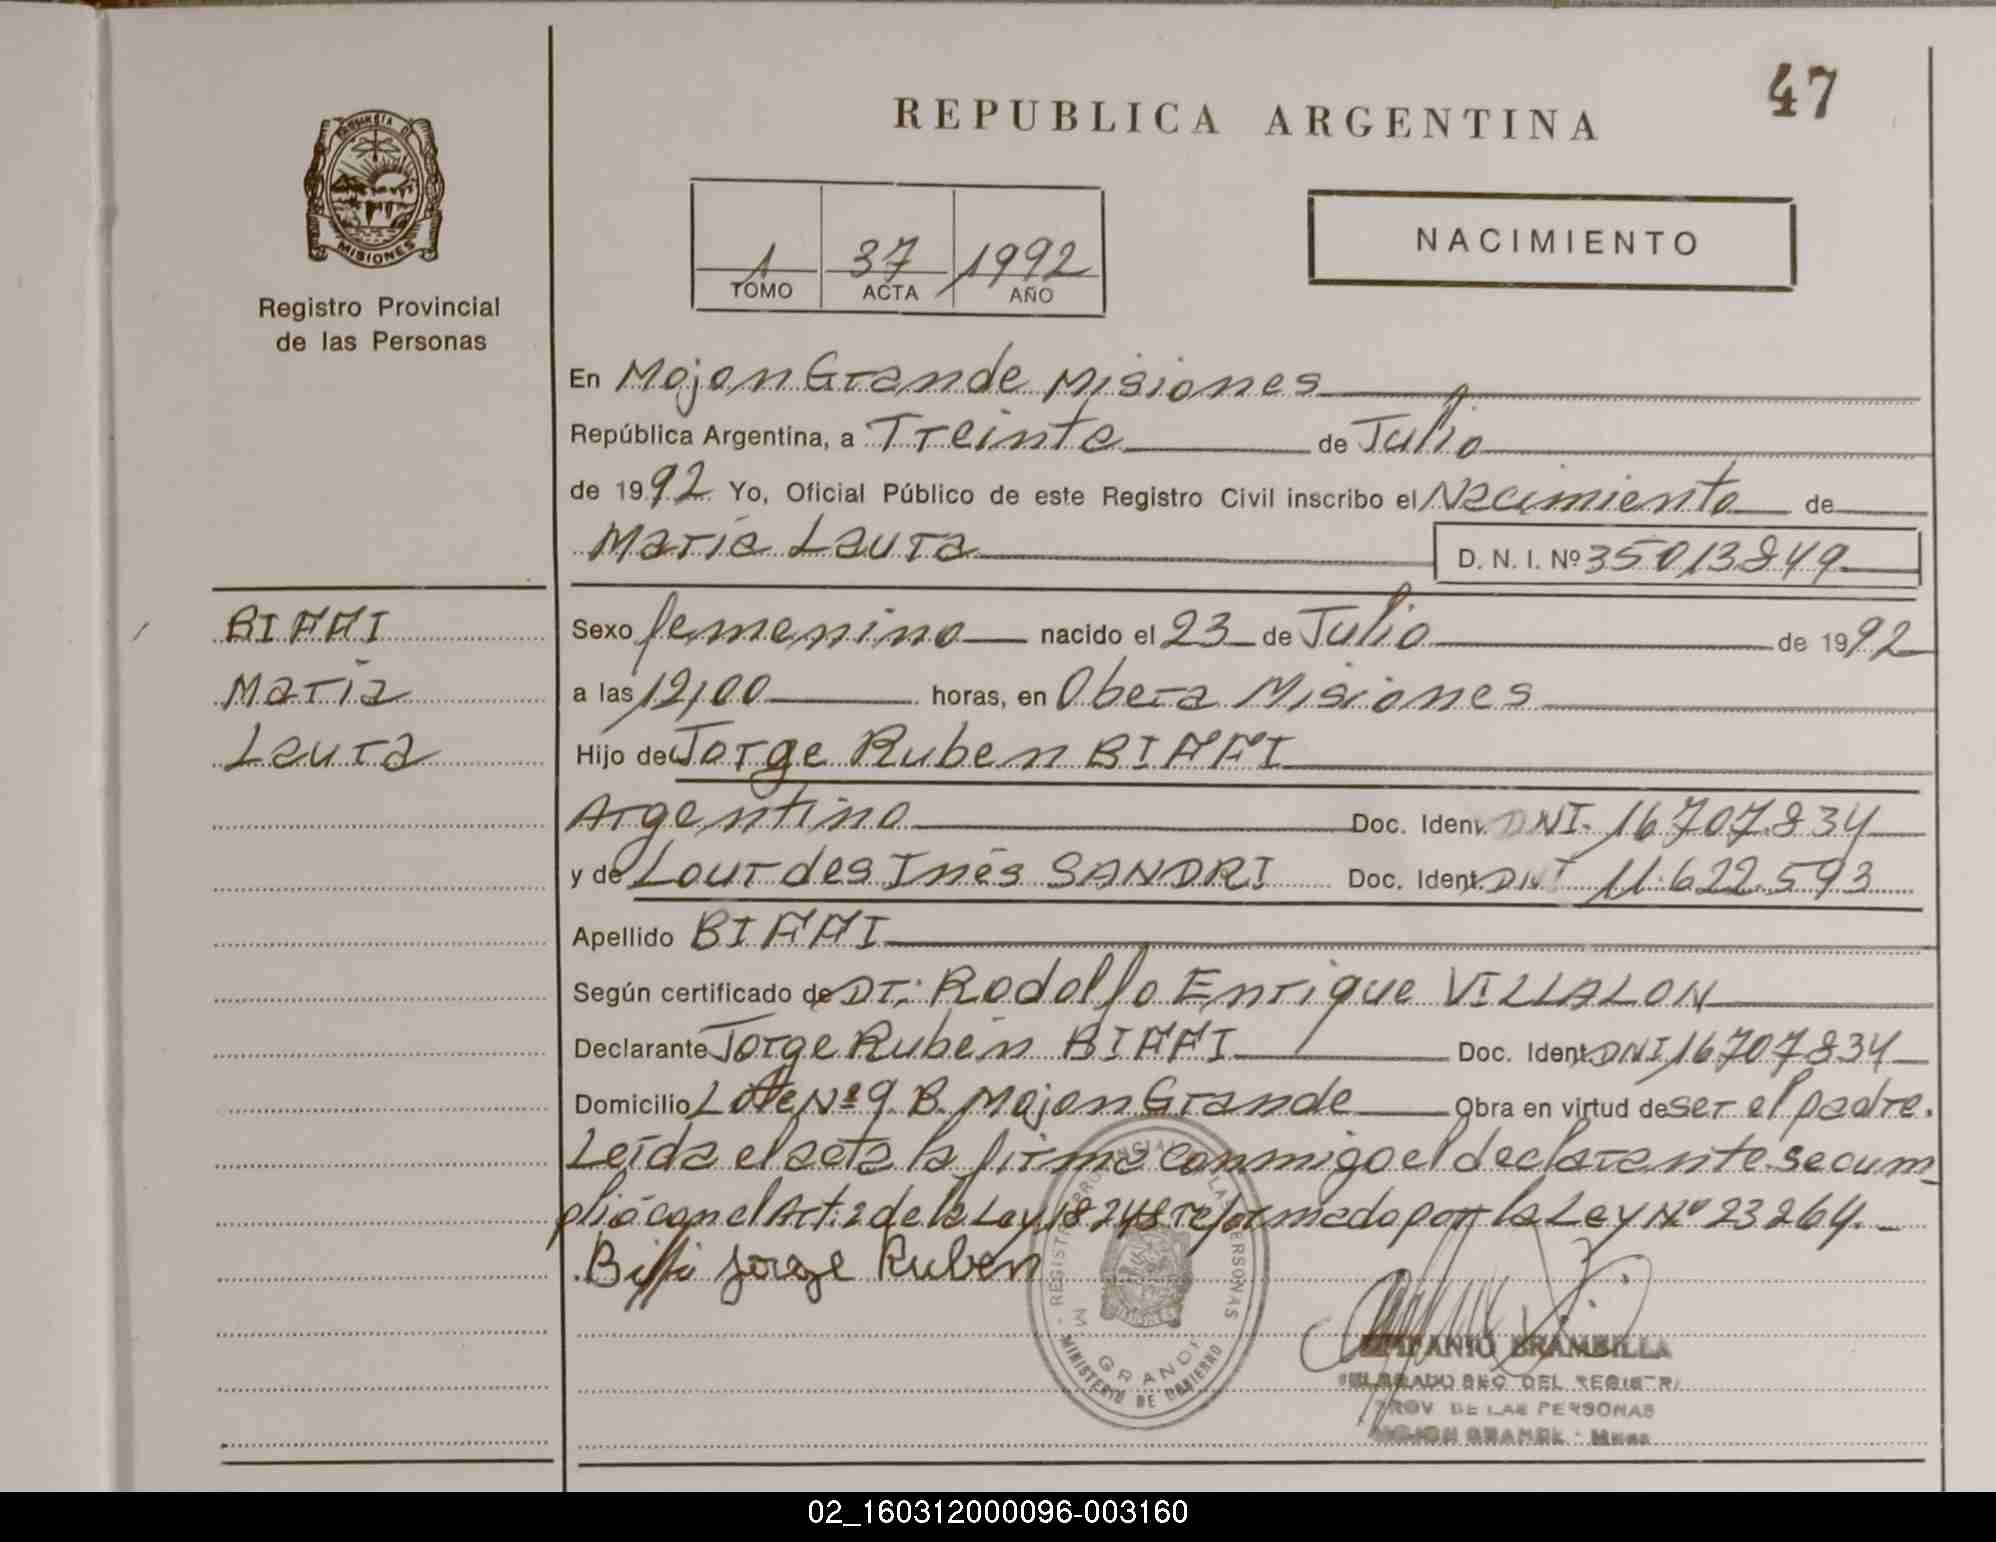 47
REPUBLICA ARGENTINA
PROVINCIA DE
MISIONES
Registro Provincial
de las Personas
1 37 1992
TOMO ACTA AÑO
NACIMIENTO
En Mojon Grande Misiones
República Argentina, a Treinta de Julio
de 1992 Yo, Oficial Público de este Registro Civil inscribo el Nacimiento de
María Laura D. N. I. Nº 35013849
BIFFI
María
Laura
Sexo femenino nacido el 23 de Julio de 1992
a las 12,00 horas, en Obera Misiones
Hijo de Jorge Ruben BIFFI
Argentino Doc. Ident. DNI. 16.707.834
y de Lourdes Inés SANDRI Doc. Ident. DNI 11.622.593
Apellido BIFFI
Según certificado de Dr: Rodolfo Enrique VILLALON
Declarante Jorge Rubén BIFFI Doc. Ident. DNI 16707834
Domicilio Lote Nº 9 B. Mojon Grande Obra en virtud de ser el padre.
Leída el acta la firma conmigo el declarante. se cum_
plió con el Art. 2 de la Ley 18248 reformado por la Ley Nº 23264._
Biffi Jorge Ruben
REGISTRO PROVINCIAL DE LAS PERSONAS
M. GRANDE
MINISTERIO DE GOBIERNO
BRAMBILLA
DELEGADO SEC. DEL REGISTRO
PROV. DE LAS PERSONAS
MOJON GRANDE - Mnes
02_160312000096-003160